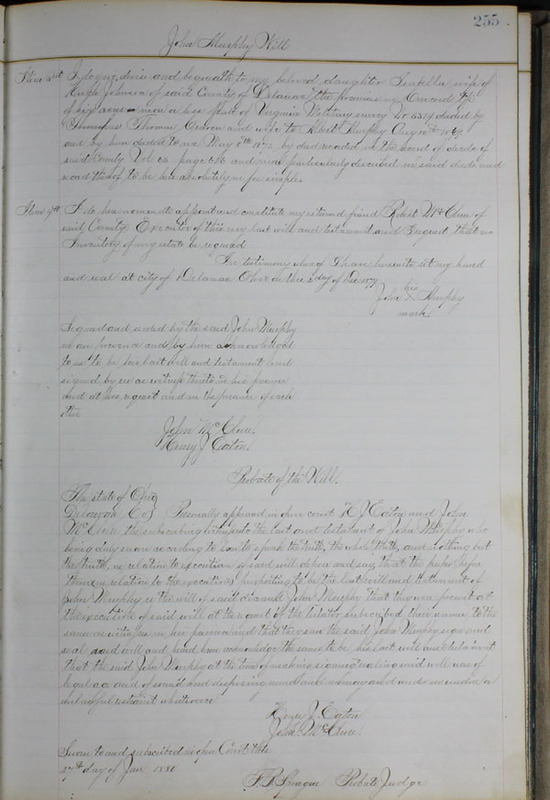 255
John Murphy Will
Item 3rd I do give, devise and bequeath to my beloved daughter Isabella wife of
Hugh Johnson of said County of Delaware the premises in Concord Tp
of six acres more or less part of Virginia Military survey No deeded by
Thomas and wife to Murphy Aug 1867
and by him deeded to me May 8th 1872 by deed recorded in the record of deeds of
said County Vol page and more particularly described in said deed and
record thereof to be hers absolutely in fee simple.
Item 4th I do hereby nominate appoint and constitute my esteemed friend Robert McClure of
said County Executor of this my last will and testament and I request that no
Inventory of my estate be required
In testimony whereof I have hereunto set my hand
and seal at city of Delaware Ohio on this day of Dec 1879
his
John X Murphy
mark.
Signed and sealed by the said John Murphy
in our presence and by him acknowledged
to us to be his last will and testament and
signed by us as witness thereto in his presence
and at his request and in the presence of each
other
John McClure.
Henry J Eaton.
Probate of the Will.
The state of Ohio
Delaware Co } Personally appeared in open court H J Eaton and John
McClure the subscribing witnesses to the last will and testament of John Murphy who
being duly sworn according to law to speak the truth, the whole truth, and nothing but
the truth, in relation to execution of said will depose and say, that the paper before
them in relation to the execution purporting to be the last will and testament of
John Murphy is the will of said deceased John Murphy that they were present at
the execution of said will at the request of the testator subscribed their names to the
same as witnesses in his presence and that they saw the said John Murphy sign and
seal said will and heard him acknowledge the same to be his last will and testament
that the said John Murphy at the time of making signing sealing said will was of
legal age and of sound and disposing mind and memory and under no undue or
unlawful restraint whatsoever
Henry J. Eaton
John McClure.
Sworn to and subscribed in open Court this
27th day of Jan 1880
F. B. Sprague Probate Judge